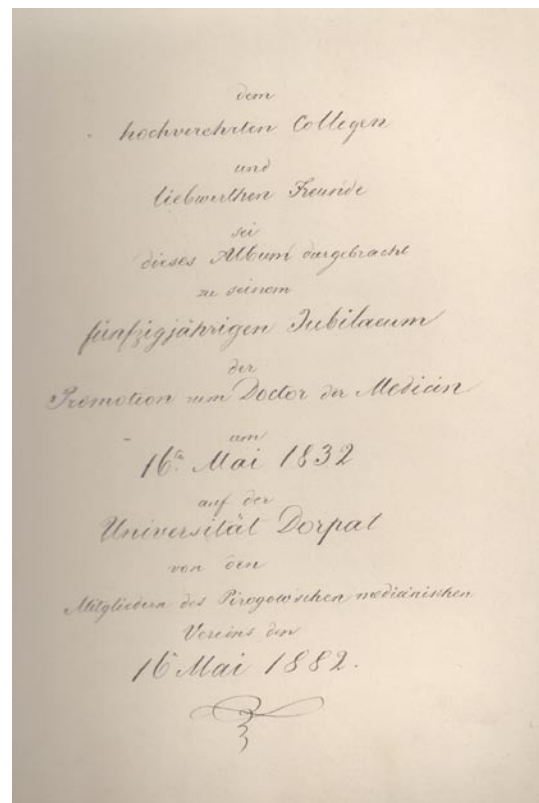 dem
hochverehrten Collegen
und
liebwerthen Freunde
sei
dieses Album dargebracht
zu seinem
fünfzigjährigen Jubilaeum
der
Promotion zum Doctor der Medicin
am
16ten Mai 1832
auf der
Universität Dorpat
von den
Mitgliedern des Pirogow'schen medicinischen
Vereins den
16 Mai 1882.